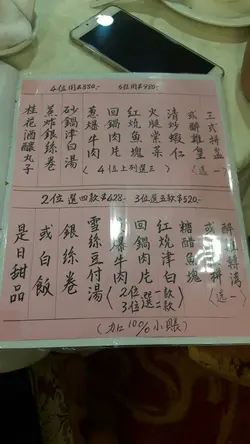 4位用$550.-
6位用$980.-
三式拼盆
或醉雞煲(選一)
清炒蝦仁
火腿棠菜
紅燒魚塊
回鍋肉片
葱爆牛肉
(4位上列選
砂鍋津白湯
蒸炸銀絲卷
桂花酒釀丸子
2位選四款$428.-
3位選五款$520.-
醉雞
或 拼(選一)
糖醋魚塊
紅燒津白
回鍋肉片
爆牛肉
(2位選一款
3位選二款)
雪絲豆付湯
銀絲卷
或白飯
是日甜品
(加10%小賬)